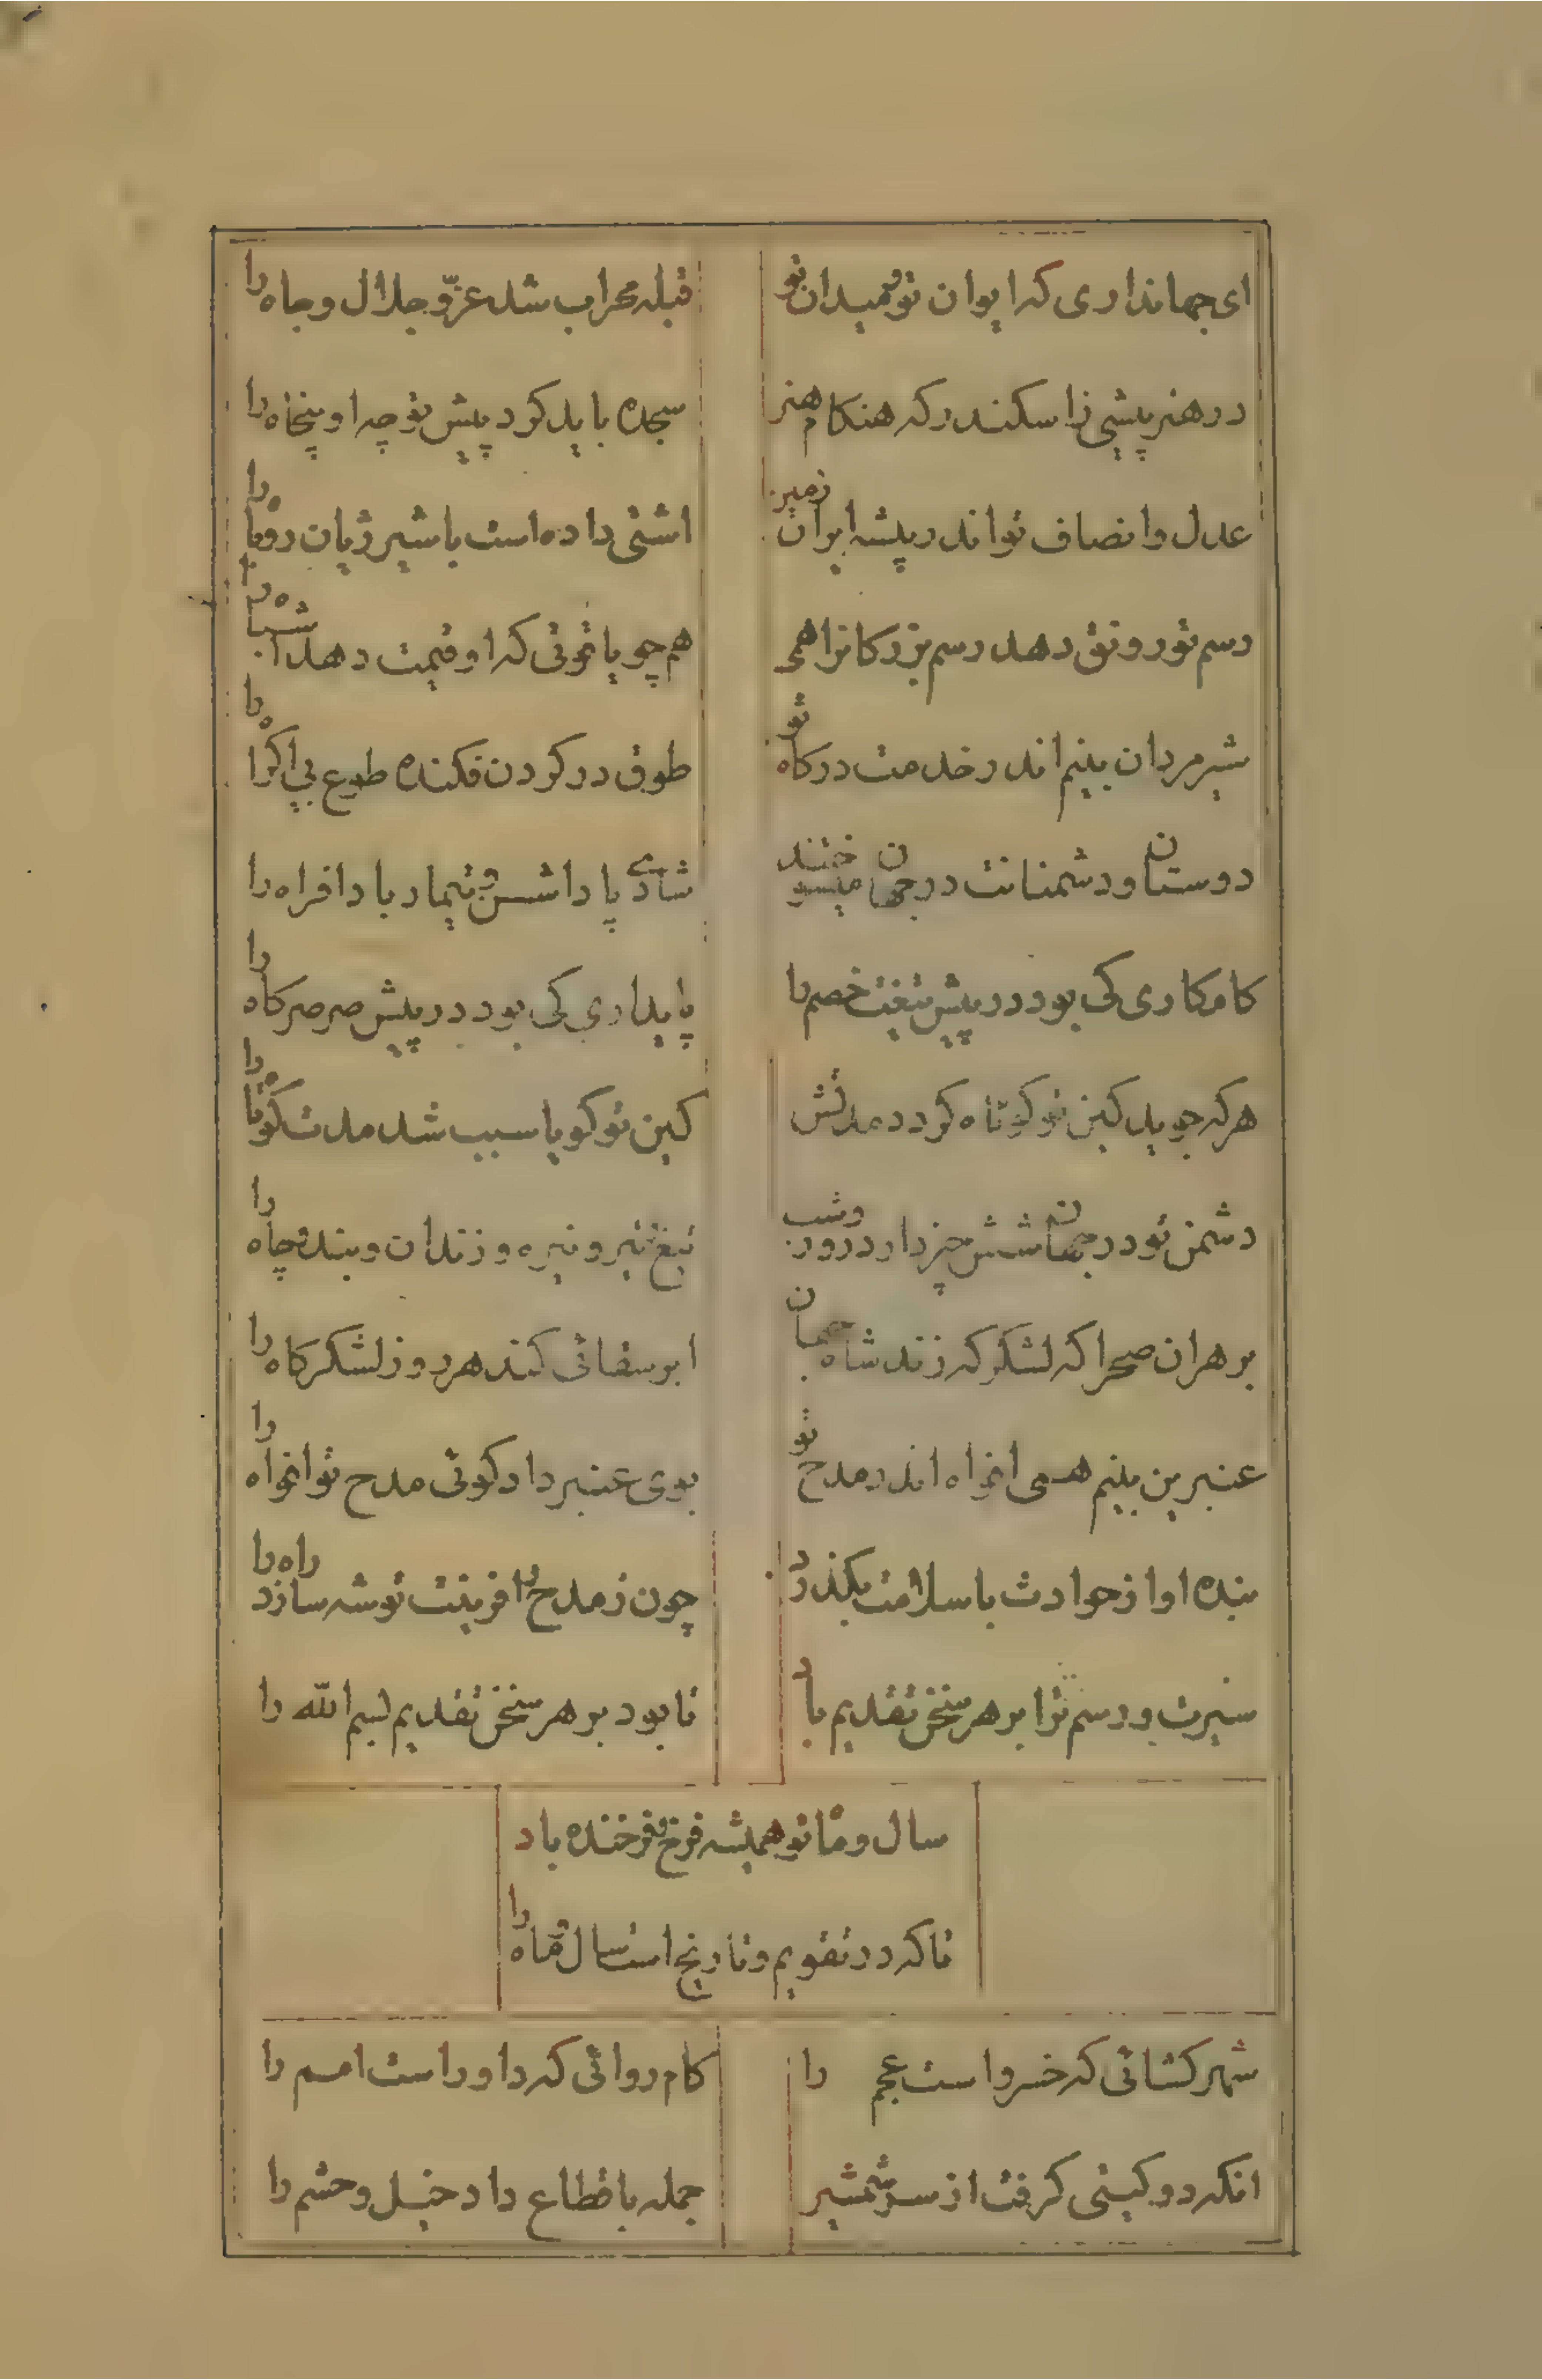 ای جهانداری که ایوان تو و میدان تو
قبله محراب شد عزّ و جلال و جاه را
در هنر پیشی ز اسکندر که هنکام هنر
سجده باید کرد پیش تو چه او پنجاه را
عدل و انصاف تو اندر پیشه ایران زمین
اشتی داده است با شیر ژیان روباه را
رسم تو رونق دهد رسم بزرکانرا همی
هم چو یاقوتی که او قیمت دهد شبه را
شیر مردان بینم اندر خدمت درکاه تو
طوق در کردن فکنده طوع بی اکراه را
دوستان و دشمنانت در جهان
شادی پاداشن و تیمار بادافراه را
کامکاری کی بود در پیش تیغت خصم را
پایداری کی بود در پیش صرصر کاه را
هر که جوید کین تو کوتاه کردد مدتش
کین تو کویا سبب شد مدت کوتاه را
دشمن تو در جهان شش چیز دارد روز و شب
تیغ و تیر و نیزه و زندان و بند و چاه را
بر هران صحرا که لشکر که زند شاه جهان
ابر سقائی کند هر روز لشکرکاه را
عنبرین بینم همی افواه اندر مدح تو
بوی عنبر داد کوئی مدح تو افواه را
بنده او از حوادث با سلامت بکذرد
چون ز مدح و افرینت توشه سازد راه را
سیرت و رسم ترا بر هر سخن تقدیم باد
تا بود بر هر سخن تقدیم بسم الله را
سال و ماه تو همیشه فرخ و فرخنده باد
تا که در تقویم و تاریخ است سال و ماه را
شهر کشائی که خسرو است عجم را
کام روائی که داور است امم را
انکه دو کیتی کرفت از سر شمشیر
جمله باقطاع داد خیل و حشم را